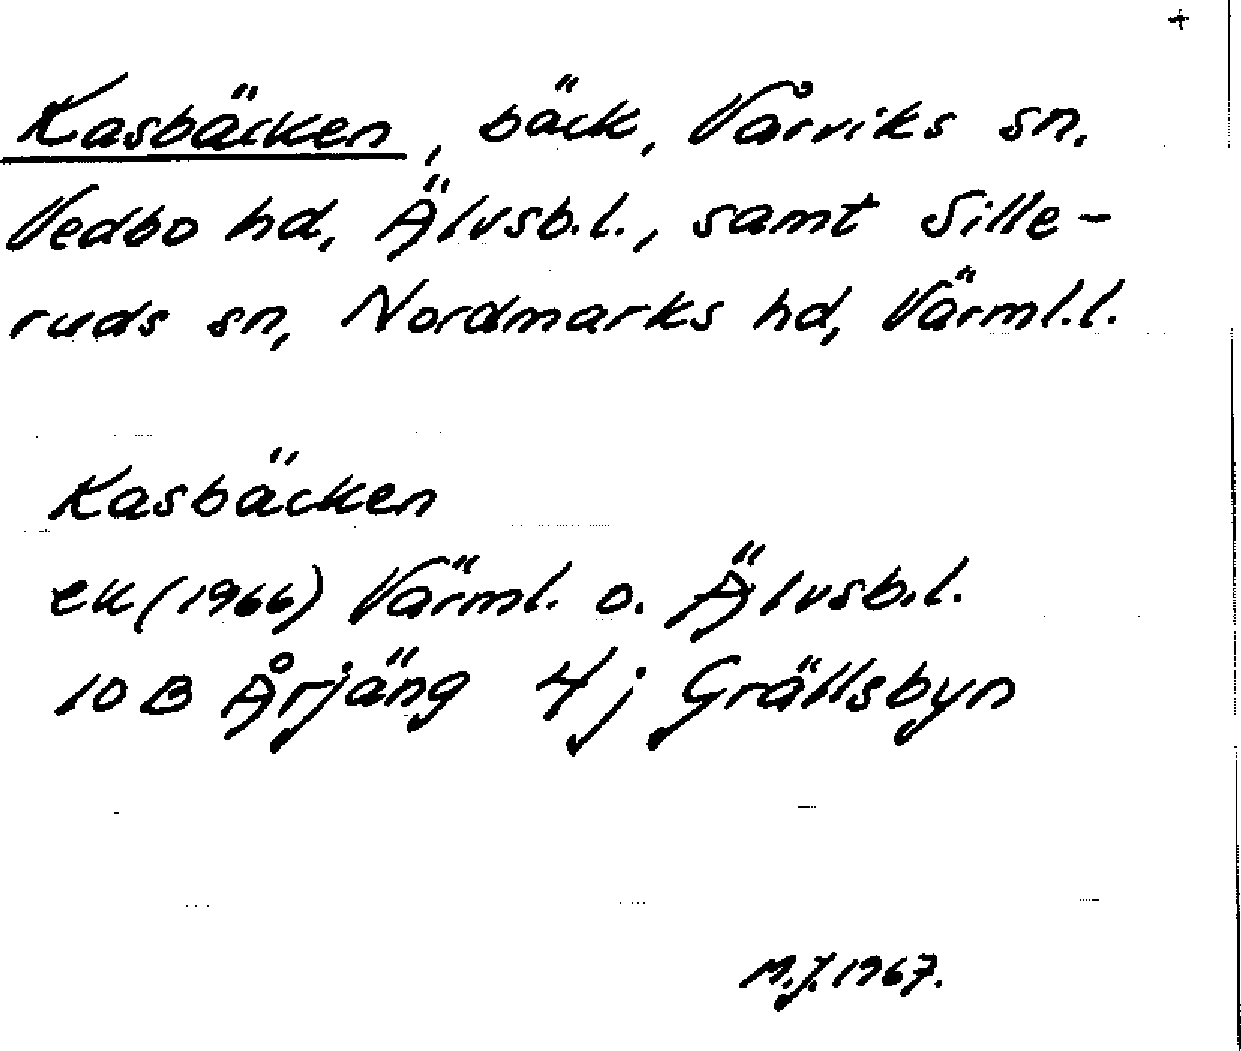 +
Kasbäcken, bäck, Vårviks sn.
Vedbo hd, Älvsb.l., samt Sille-
ruds sn, Nordmarks hd, Värml.l.
Kasbäcken
ek (1966) Värml. o. Älvsb.l.
10 B Årjäng 4 j Grällsbyn
M.J. 1967.